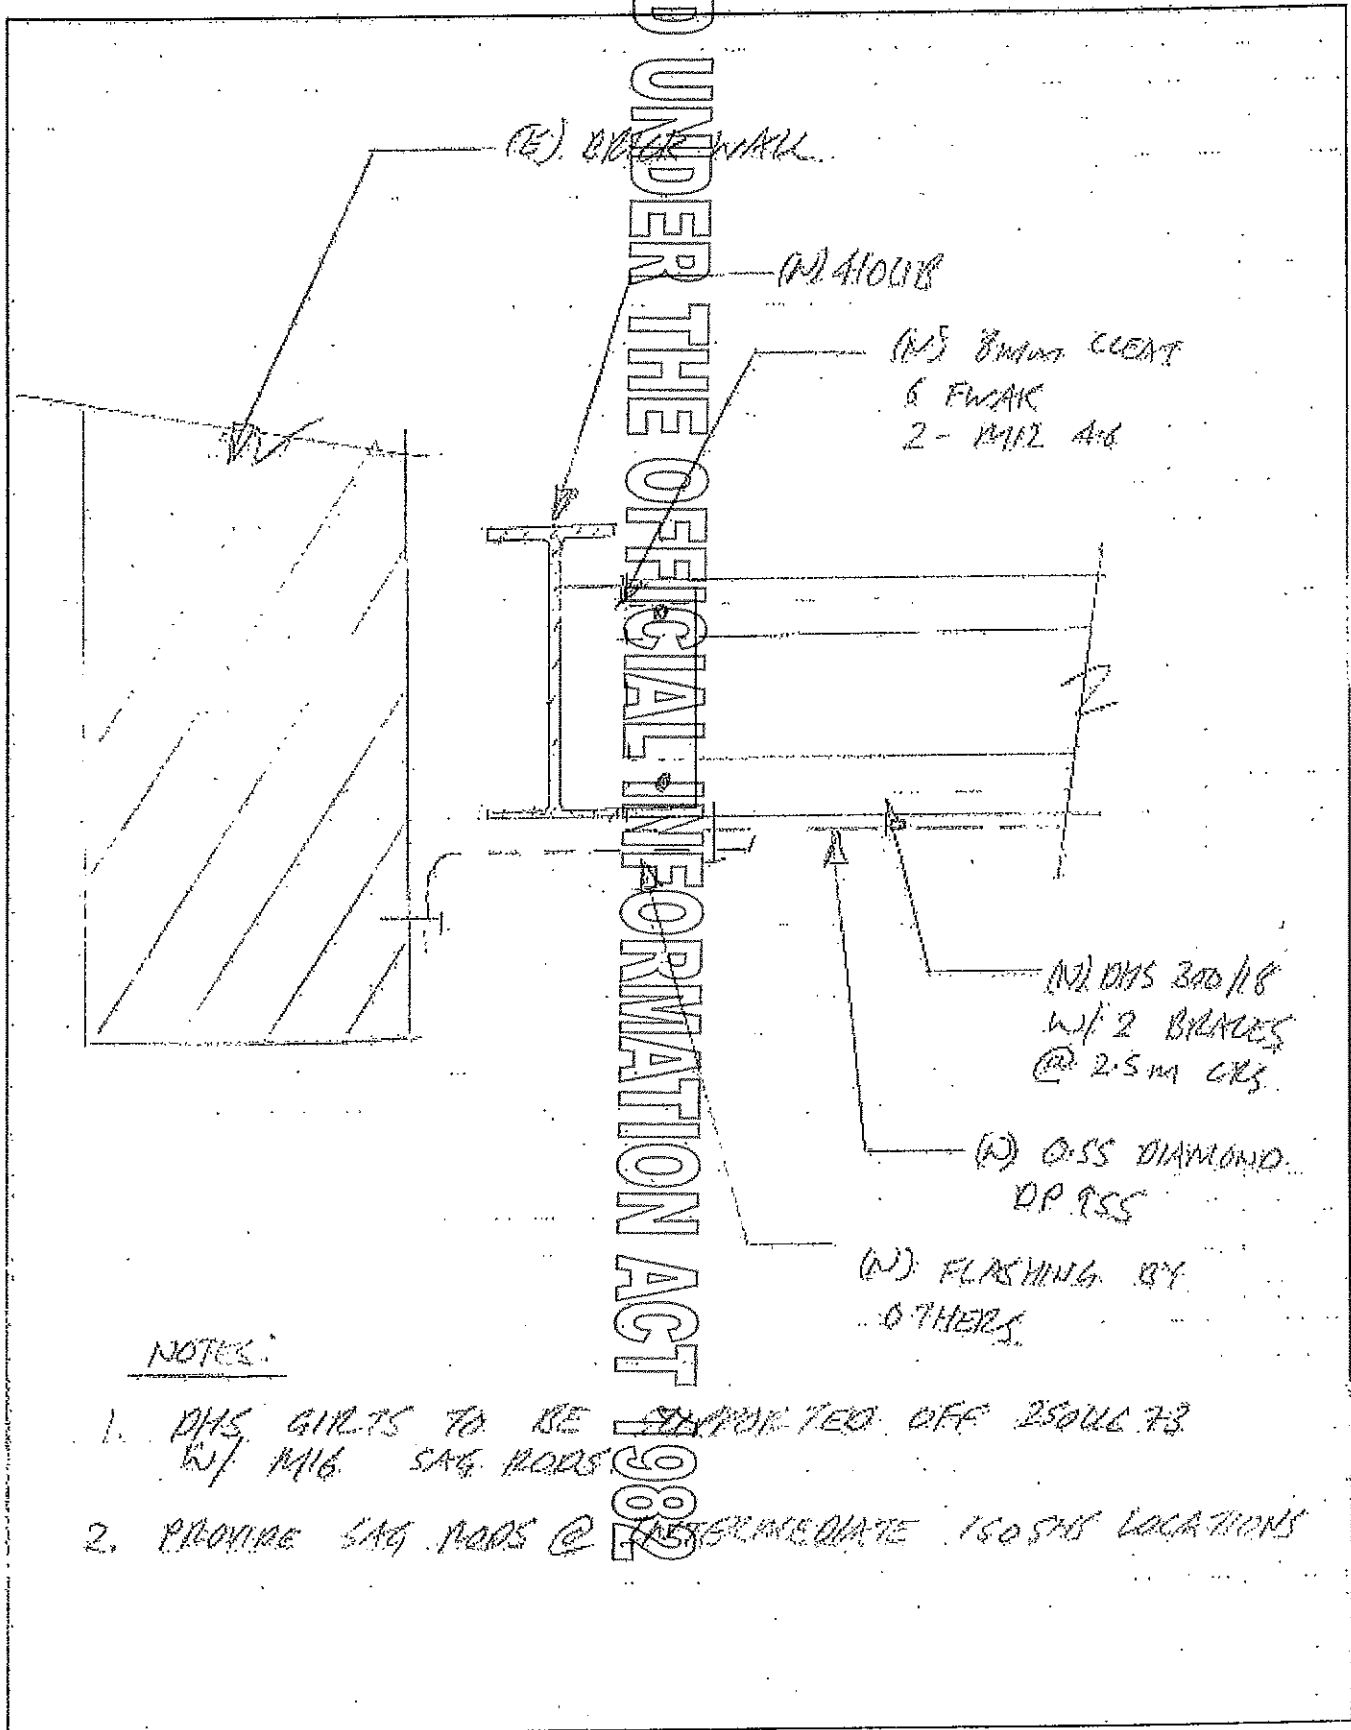 D UNDER THE OFFICIAL INFORMATION ACT 1982
(E) BRICK WALL
(N) 410UB
(N) 8mm CLEAT
6 FWAR
2- M12 4.6
(N) DHS 300/18
W/ 2 BRACES
@ 2.5m CRS.
(N) 0.55 DIAMOND
DP 955
(N) FLASHING BY
OTHERS
NOTES:
1. DHS GIRTS TO BE SUPPORTED OFF 250UC 73
W/ M16 SAG RODS
2. PROVIDE SAG RODS @ INTERMEDIATE 150SHS LOCATIONS